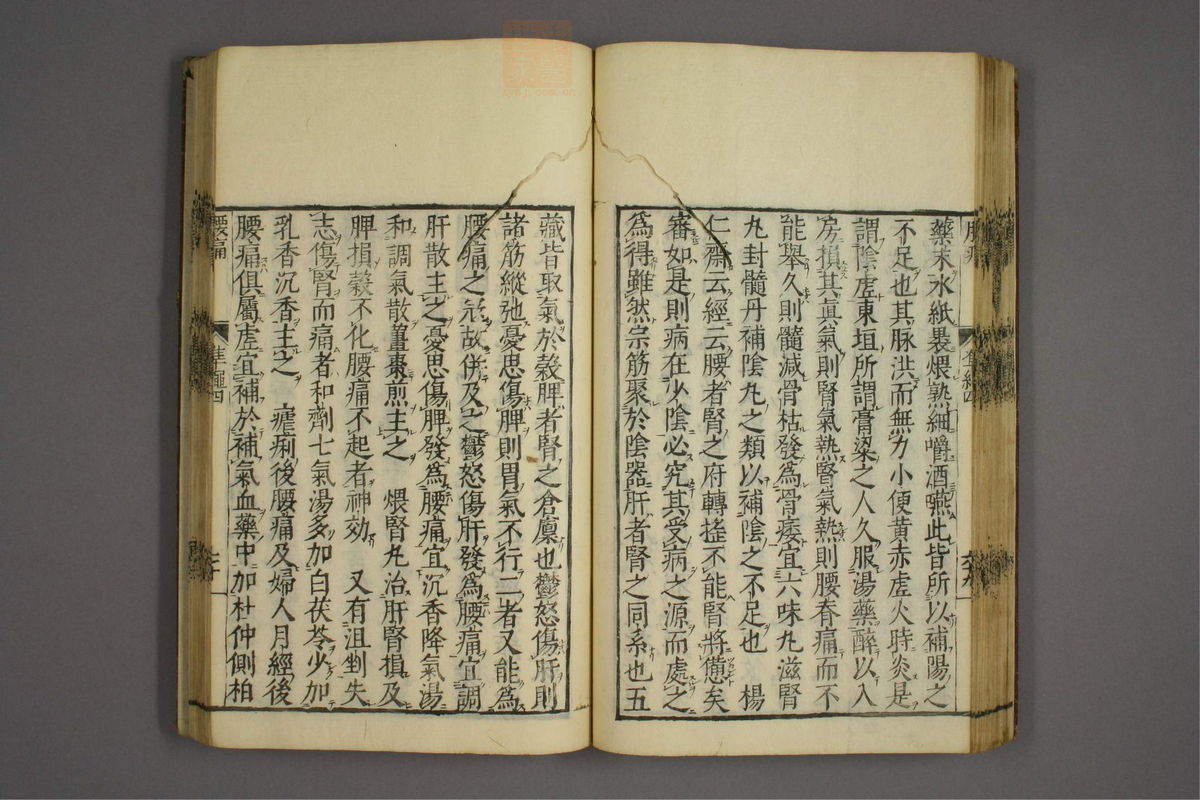 藥末水紙裹煨熟細嚼酒嚥此皆所以補陽之
不足也其脉洪而無力小便黄赤虛火時炎是
謂陰虛東垣所謂膏粱之人久服湯藥醉以入
房損其眞氣則腎氣熱腎氣熱則腰脊痛而不
能舉久則髓減骨枯發爲骨痿宜六味丸滋腎
丸封髓丹補陰丸之類以補陰之不足也　楊
仁齋云經云腰者腎之府轉搖不能腎將憊矣
審如是則病在少陰必究其受病之源而處之
爲得雖然宗筋聚於陰器肝者腎之同系也五
藏皆取氣於穀脾者腎之倉廩也鬱怒傷肝則
諸筋縱弛憂思傷脾則胃氣不行二者又能爲
腰痛之冦故併及之鬱怒傷肝發爲腰痛宜調
肝散主之憂思傷脾發爲腰痛宜沉香降氣湯
和調氣散薑棗煎主之　煨腎丸治肝腎損及
脾損穀不化腰痛不起者神効　又有沮剉失
志傷腎而痛者和劑七氣湯多加白茯苓少加
乳香沉香主之　瘧痢後腰痛及婦人月經後
腰痛俱屬虛宜補於補氣血藥中加杜仲側柏
腰痛
準繩四